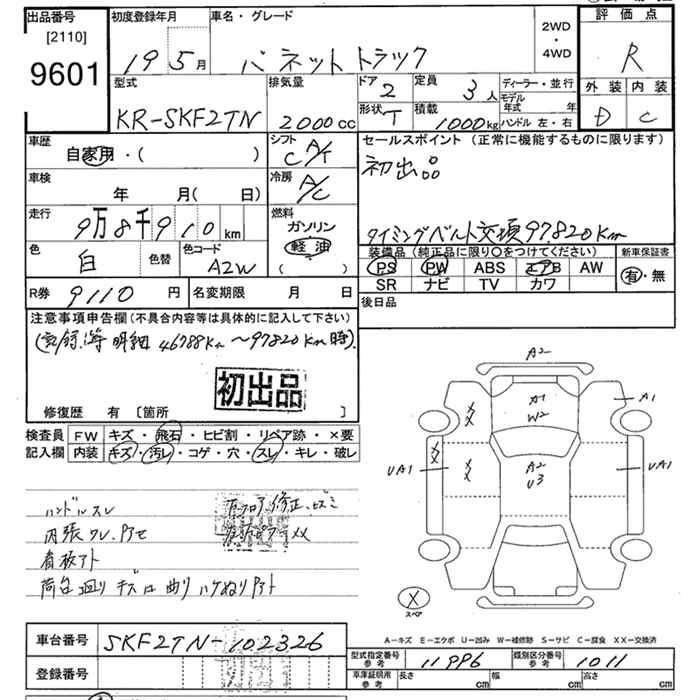 出品番号 初度登録年月 車名・グレード 評価点
[2110]
9601
19 5月 バネットトラック 2WD・4WD R
型式 排気量 ドア 2 定員 3人 ディーラー・並行 外装 内装
モデル年式 年
KR-SKF2TN 2000cc 形状 T 積載 1000kg ハンドル 左・右 D C
車歴 シフト セールスポイント (正常に機能するものに限ります)
自家用・( ) C A/T 初出品
車検 冷房
年 月( 日) A/C
走行 燃料
9万8千910km ガソリン
軽油
( )
タイミングベルト交換97,820Km
色 白 色替 色コード A2W
装備品(純正品に限り○をつけてください) 新車保証書
PS PW ABS エアB AW 有・無
SR ナビ TV カワ
R券 9110円 名変期限 月 日 後日品
注意事項申告欄(不具合内容等は具体的に記入して下さい)
(記録簿 明細 46788Km〜97820Km時)
初出品
修復歴 有 [箇所 ]
検査員 FW キズ・飛石・ヒビ割・リペア跡・×要
記入欄 内装 キズ・汚レ・コゲ・穴・スレ・キレ・破レ
ハンドルスレ
内張ワレ、
看板アト
荷台廻りキズ 曲り ハケぬりアト
A2
A1
W2
A1
XX
XX
XX
UA1
A2
U3
UA1
X
スペア
A-キズ E-エクボ U-凹み W-補修跡 S-サビ C-腐食 XX-交換済
車台番号 SKF2TN-102326
登録番号
型式指定番号 参考 11996 類別区分番号 参考 1011
車庫証明用 参考 長さ cm 幅 cm 高さ cm